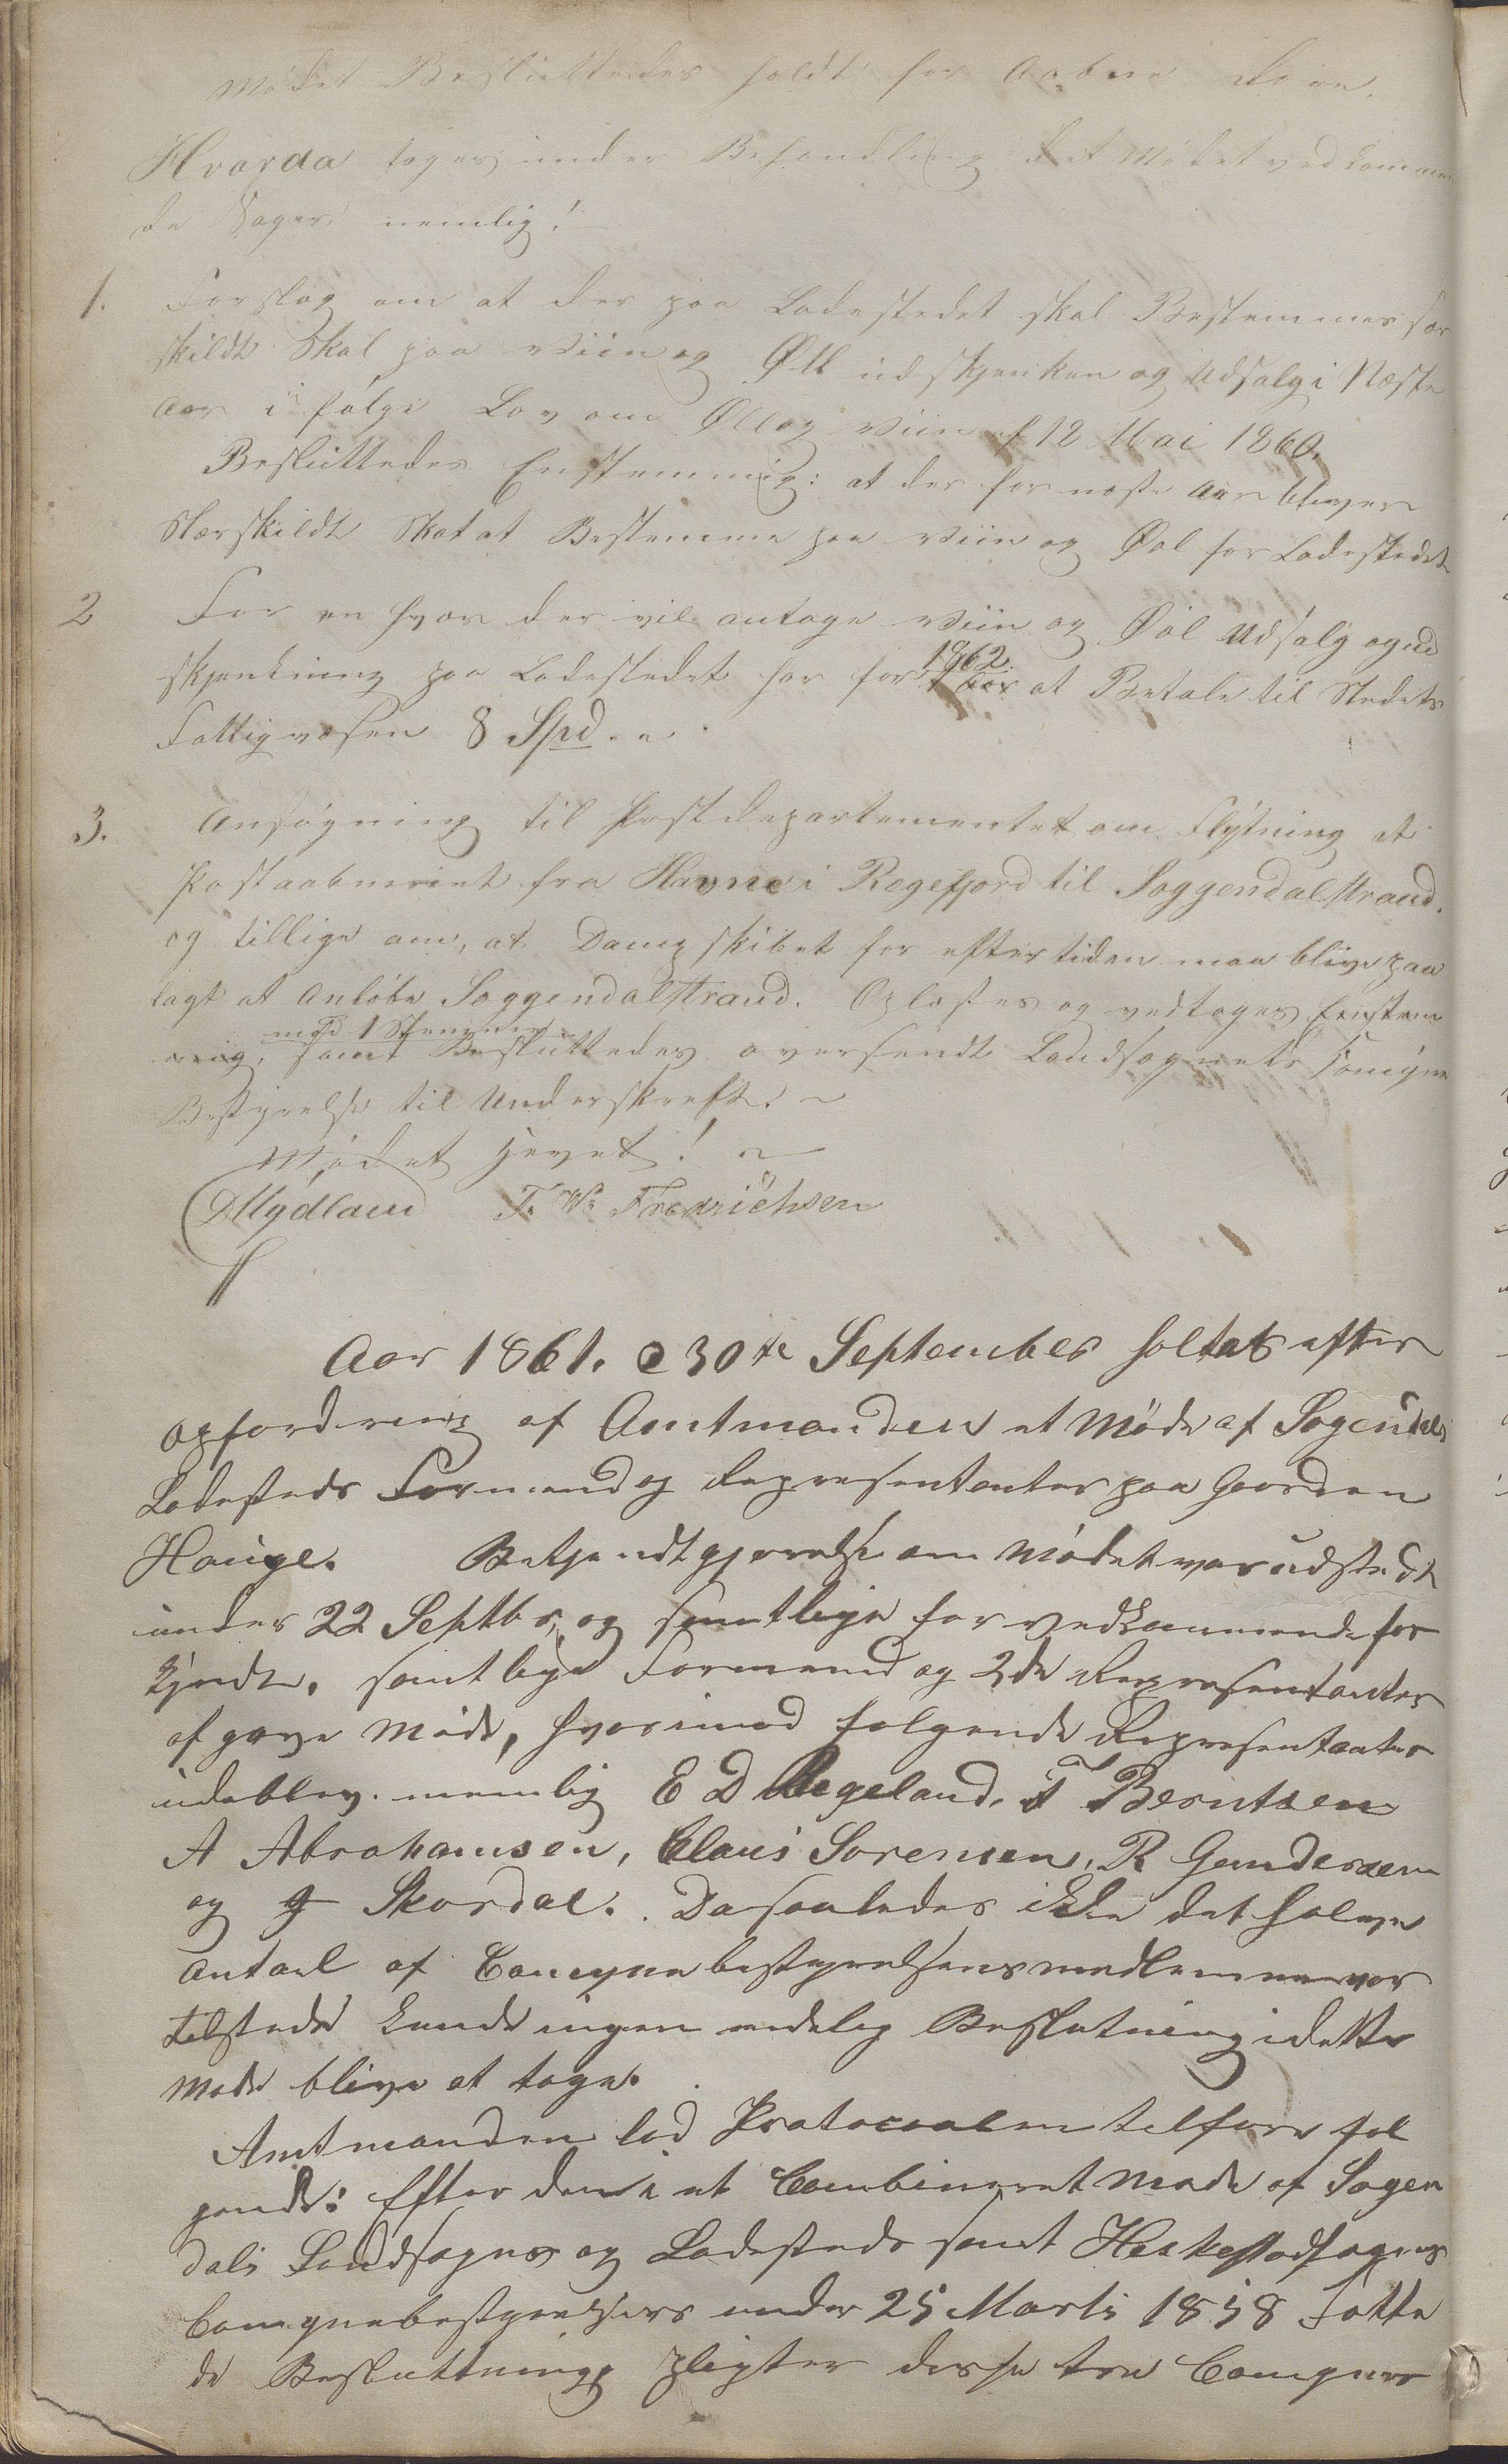 Mødet Besluttedes holdt for Aabne Døre.
Hvorda toges under Behandling det Mødet vedkommen
de Sager nemlig!
1. Forslag om at der paa Ladestedet skal Bestemmes sær
skildt Skat paa Viin og Øll udskjenken og Udsalg i Næste
Aar i følge Lov om Øll og Viin af 12 Mai 1860.
Besluttedes Enstemmig: at der for næste Aar bliver
Særskildt Skat at Bestemme paa Viin og Øøl for Ladestedet
2 For en hver der vil antage Viin og Øøl Udsalg og ud
skjenkning paa Ladestedet har for 1862 at Betale til Stedets
Fattigvæsen 8 Spd.
3. Ansøgning til Postdepartementet om Flytning at
Postaabneriet fra Havne i Regefjord til Soggendalstrand.
og tillige om, at Dampskibet for eftertiden maa blive paa
lagt at Anløbe Soggendalstrand. Oplæstes og vedtoges Enstem
mig, med 1 Stemme samt Besluttedes oversendt Landsognets Comune
Bestyrelse til Underskreft. ~
Mødet hævet! ~
D Mydland T. W. Fredrichsen
Aar 1861. d 30te September holtes efter
opfordring af Amtmanden et Møde af Sogendals
Ladesteds Formend og Representanter paa Gaarden
Hauge. Bekjendtgjørelse om Mødet var udstedt
under 22 Septbr, og samtlige for vedkommende for
kyndt. samtlige Formend og 2de Representanter
afgave Møde, hvorimod følgende Representanter
udeblev. nemlig E D Regeland, T Berntsen
A Abrahamsen, Claus Sorensen, R Gundersen
og J Skordal. Da saaledes ikke det halve
Antael af Comunebestyrelsens medlemmer var
tilstede kunde ingen endelig Beslutning i dette
Møde blive at tage.
Amtmanden lod Protocollen tilføre føl
gende: Efter den i et Combineret Møde af Sogen
dals Landsogns og Ladesteds samt Heskestadsogns
Comunebestyrelsers under 25 Marts 1858 Fatte
de Besluttning pligter disse tre Comuner